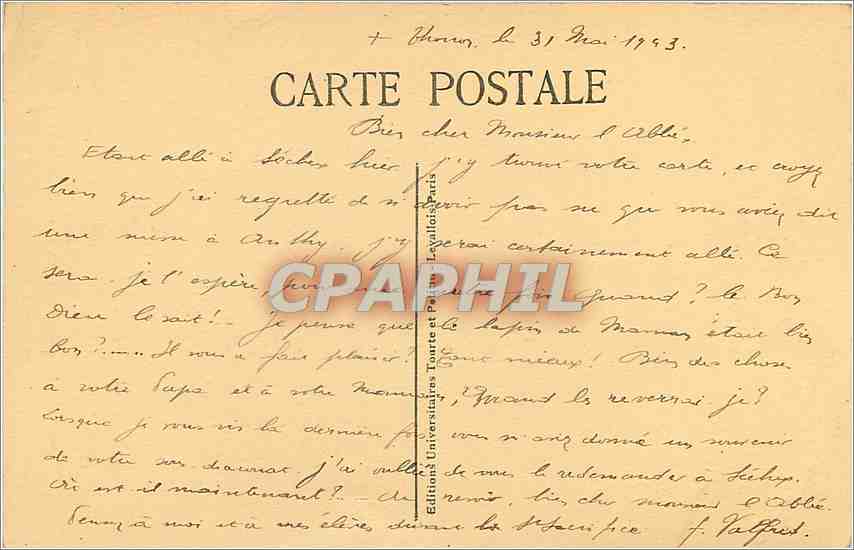 + Thonon, le 31 Mai 1943.
CARTE POSTALE
Bien cher Monsieur l'Abbé,
Etant allé à Séchex hier j'y trouve votre carte, et croyez
bien que j'ai regretté de n'avoir pas su que vous aviez dit
une messe à Anthy. J'y serai certainement allé. Ce
sera, je l'espère, pour une autre fois. Quand? le Bon
Dieu le sait!.. je pense que le lapin de Maman était bien
bon?.... Il vous a fait plaisir? Tant mieux! Bien des choses
à votre Papa et à votre Maman, Quand les reverrai-je?
Lorsque je vous vis la dernière fois, vous m'aviez donné un souvenir
de votre sous-diaconat. J'ai oublié de vous le redemander à Séchex.
Où est-il maintenant?.. Au revoir, bien cher monsieur l'Abbé.
Pensez à moi et à mes élèves durant le St Sacrifice f. Valfred.
Editions Universitaires Tourte et Petitin Levallois Paris
CPAPHIL